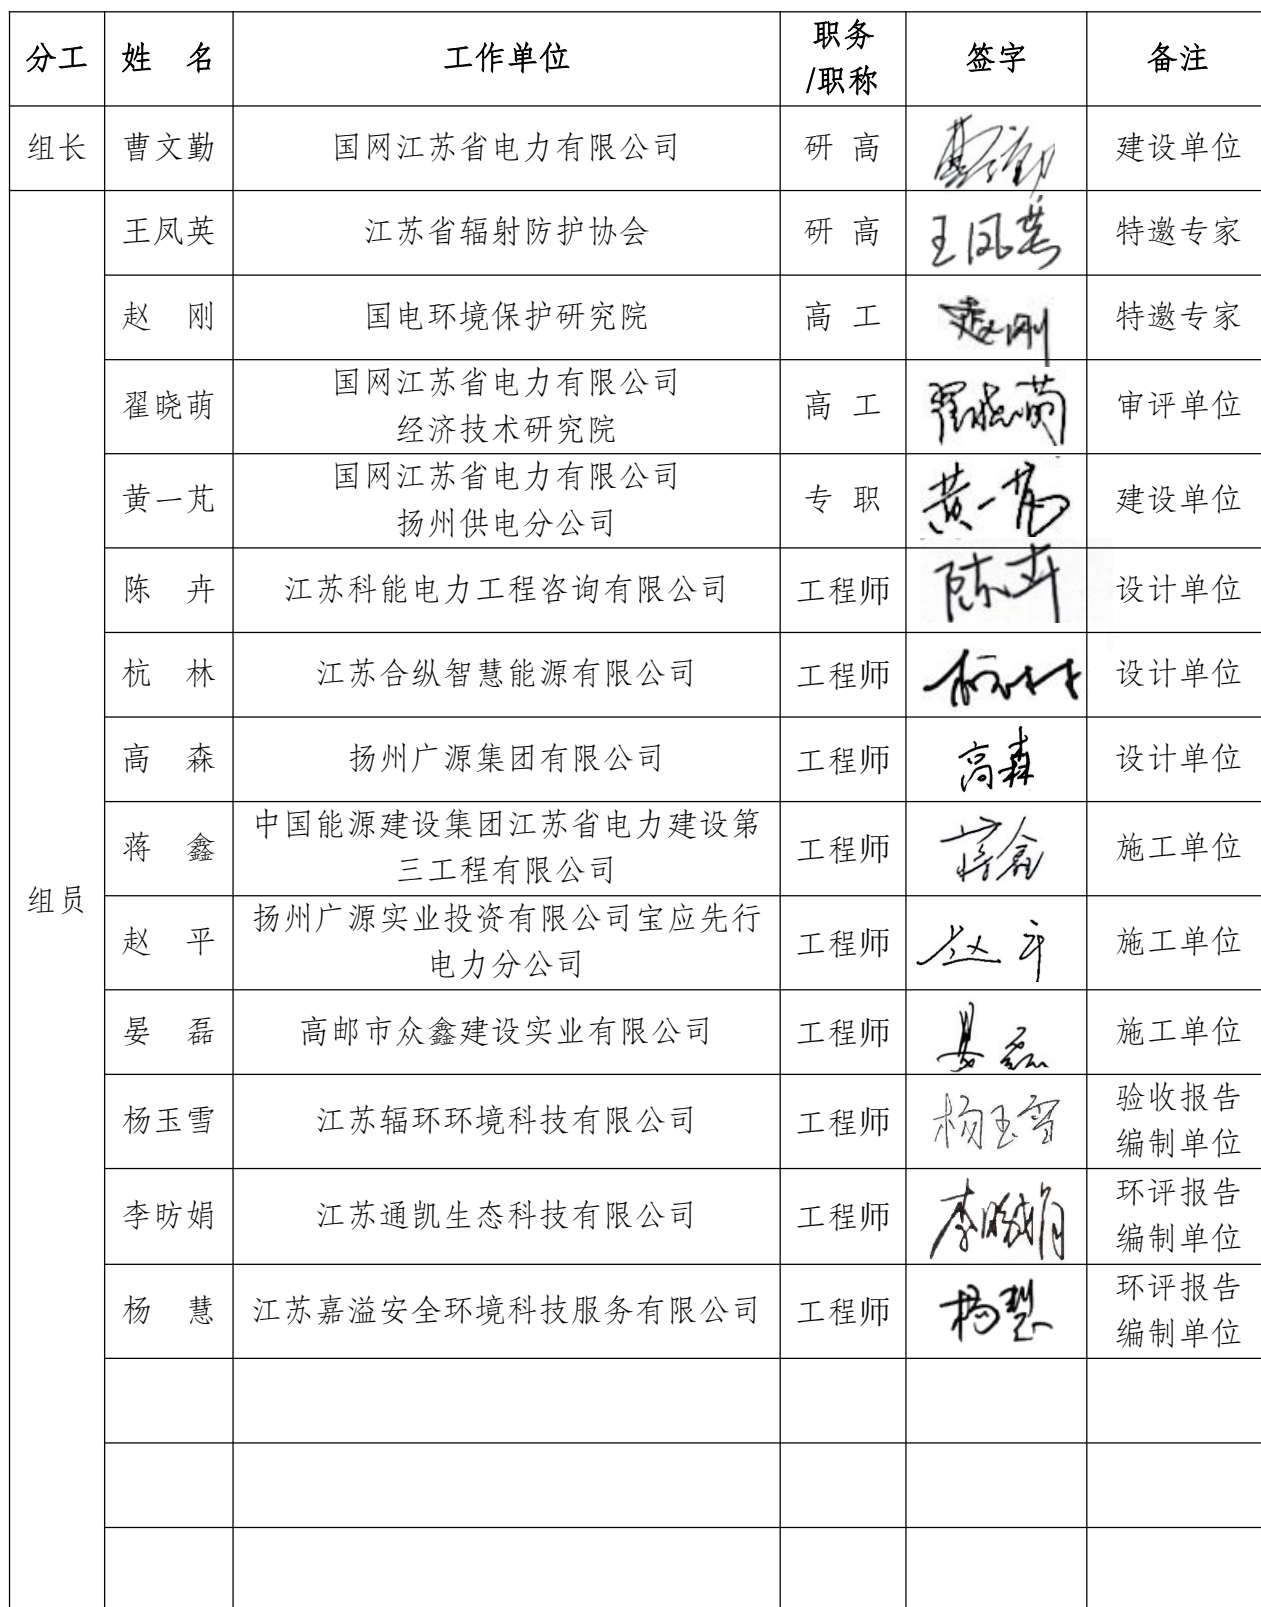 分工 姓 名 工作单位 职务/职称 签字 备注
组长 曹文勤 国网江苏省电力有限公司 研 高 曹文勤 建设单位
组员
王凤英 江苏省辐射防护协会 研 高 王凤英 特邀专家
赵 刚 国电环境保护研究院 高 工 赵刚 特邀专家
翟晓萌 国网江苏省电力有限公司 经济技术研究院 高 工 翟晓萌 审评单位
黄一芃 国网江苏省电力有限公司 扬州供电分公司 专 职 黄一芃 建设单位
陈 卉 江苏科能电力工程咨询有限公司 工程师 陈卉 设计单位
杭 林 江苏合纵智慧能源有限公司 工程师 杭林 设计单位
高 森 扬州广源集团有限公司 工程师 高森 设计单位
蒋 鑫 中国能源建设集团江苏省电力建设第三工程有限公司 工程师 蒋鑫 施工单位
赵 平 扬州广源实业投资有限公司宝应先行电力分公司 工程师 赵平 施工单位
晏 磊 高邮市众鑫建设实业有限公司 工程师 晏磊 施工单位
杨玉雪 江苏辐环环境科技有限公司 工程师 杨玉雪 验收报告编制单位
李昉娟 江苏通凯生态科技有限公司 工程师 李昉娟 环评报告编制单位
杨 慧 江苏嘉溢安全环境科技服务有限公司 工程师 杨慧 环评报告编制单位